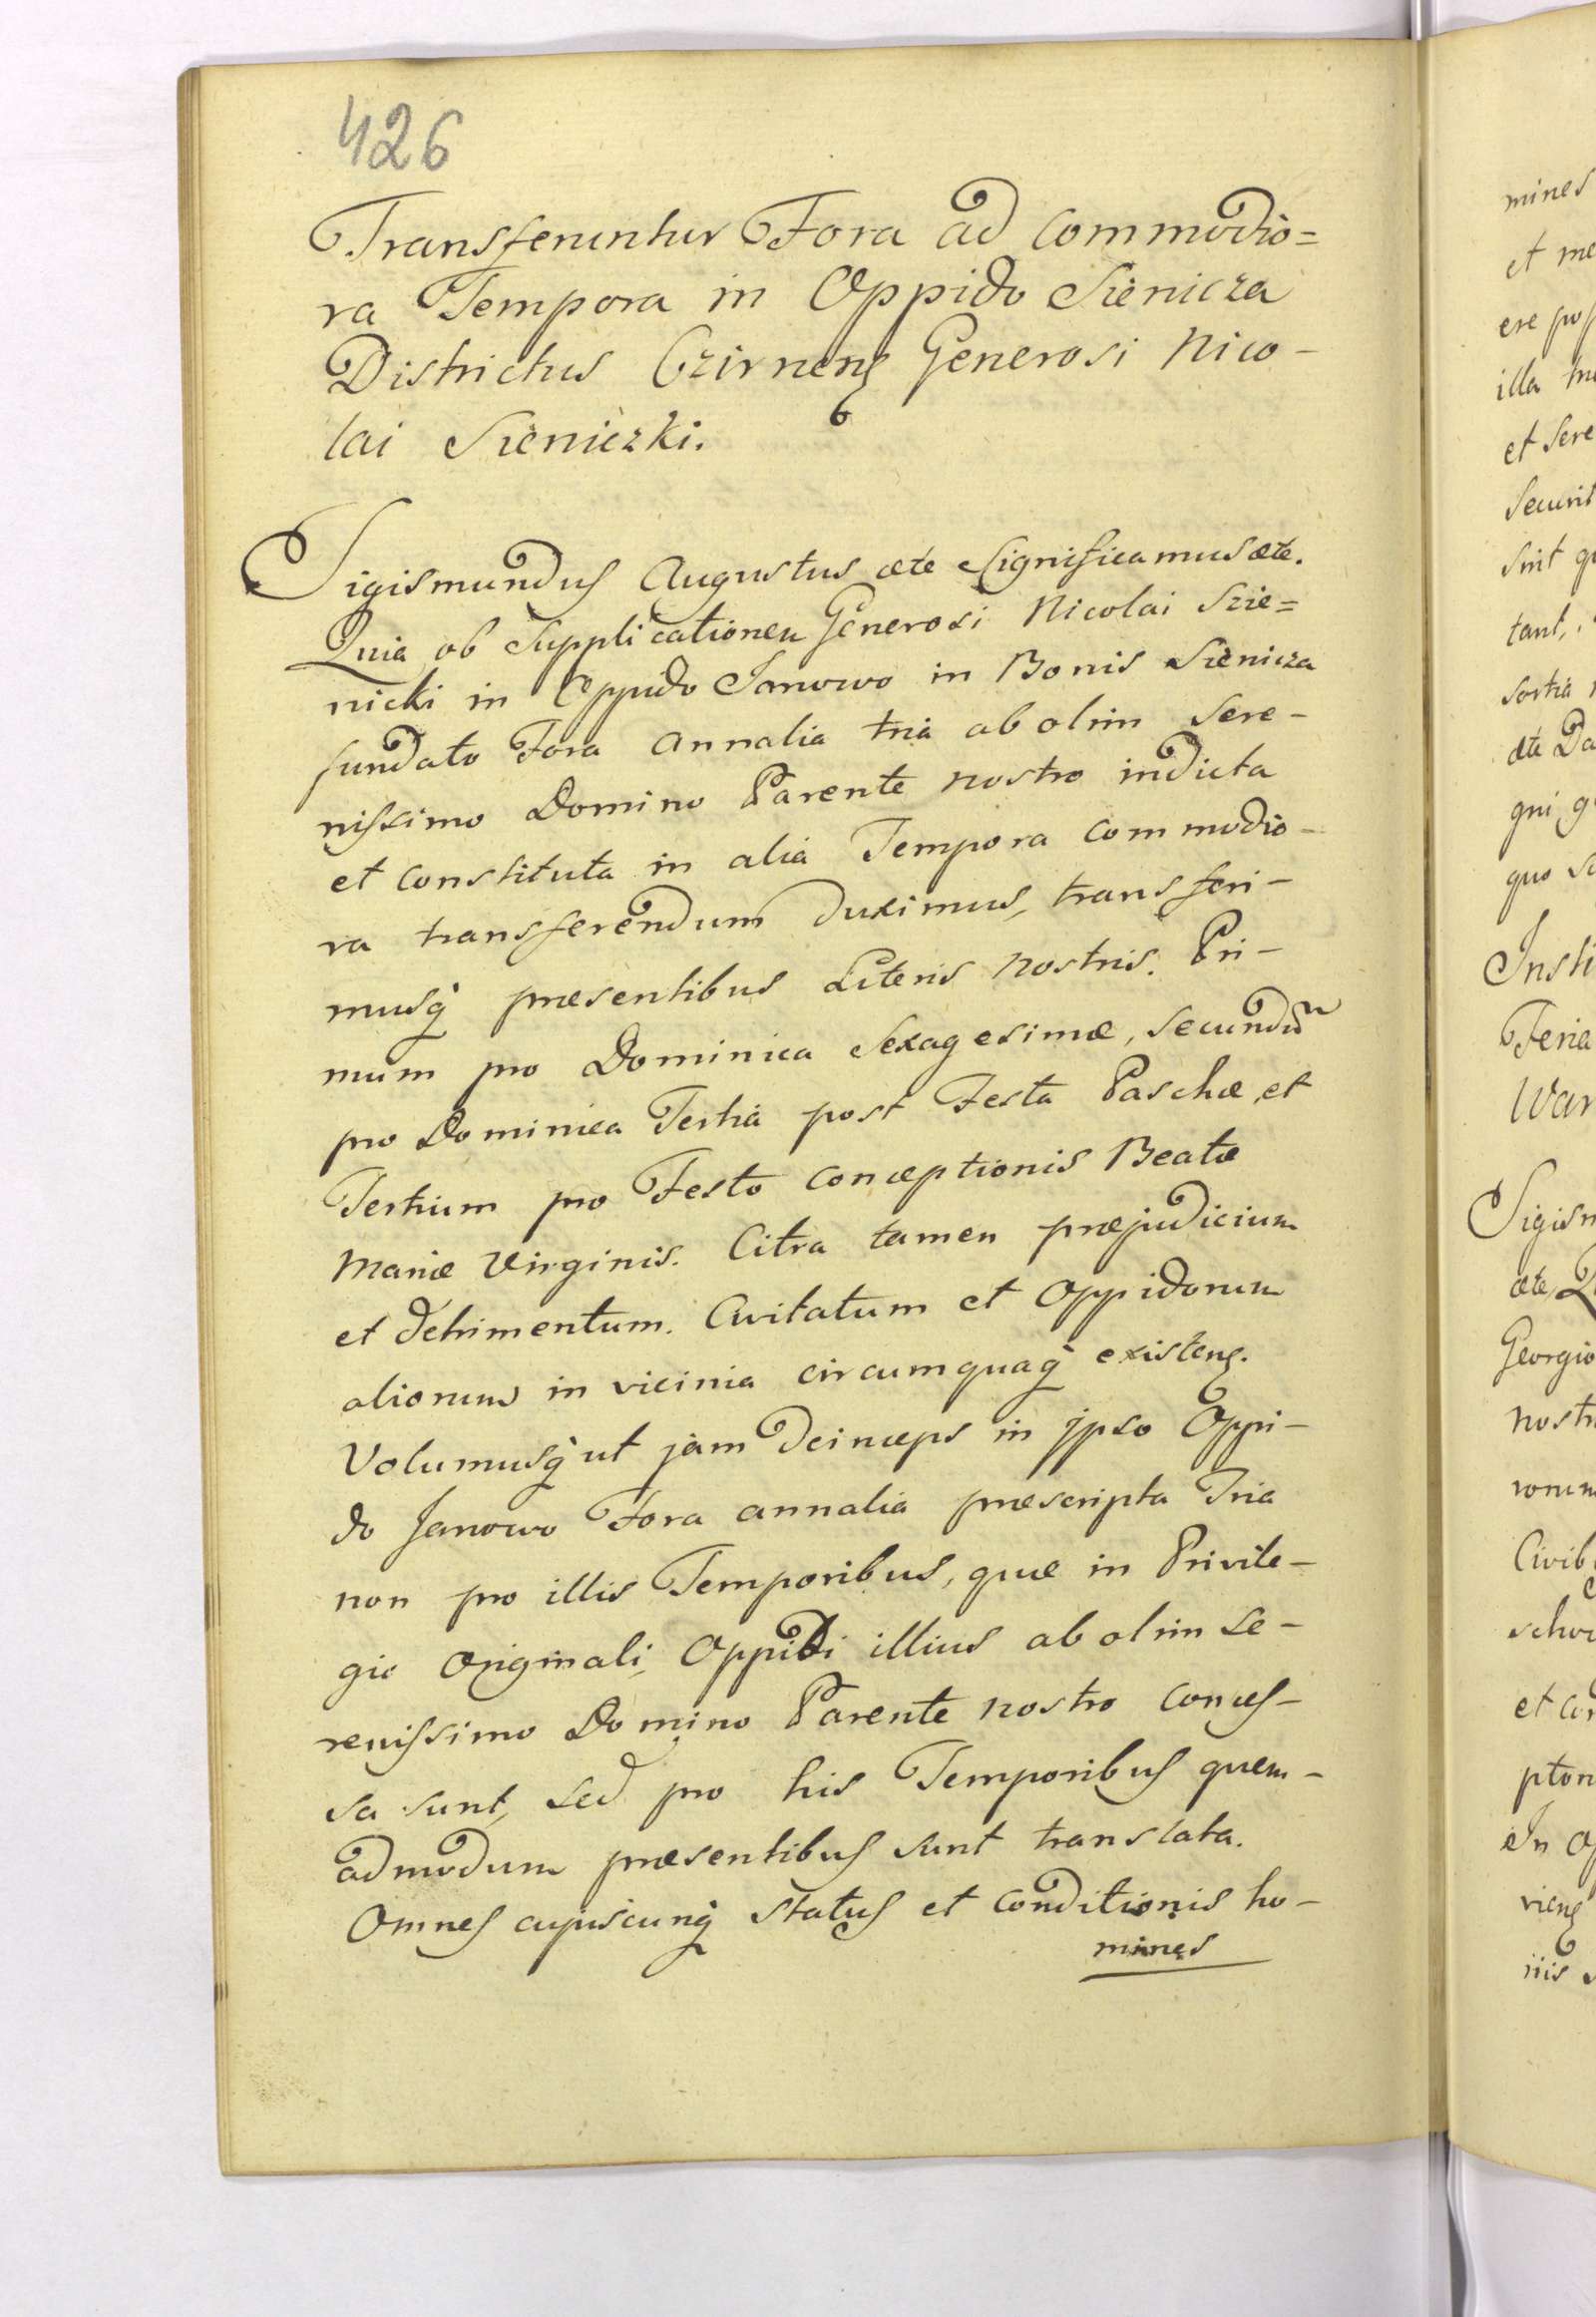 426
Transferuntur Fora ad commodio=
ra Tempora in Oppido Sienicza
Districtus Czirnens Generosi Nico-
lai Sieniczki.
Sigismundus Augustus æte Significamus æte.
Quia ob Supplicationem Generosi Nicolai Szie=
nicki in Oppido Janowo in Bonis Sienicza
fundato Fora Annalia tria ab olim Sere-
nissimo Domino Parente nostro indicta
et constituta in alia Tempora commodio-
ra transferendum duximus, transferi-
musq præsentibus Literis nostris. Pri-
mum pro Dominica Sexagesimæ, secundum
pro Dominica Tertia post Festa Paschæ, et
Tertium pro Festo conceptionis Beatæ
Mariæ Virginis. Citra tamen præjudicium
et detrimentum. Civitatum et Oppidorum
aliorum in vicinia circumquaq existens.
Volumusq ut jam deinceps in jpso Oppi-
do Janowo Fora annalia præscripta Tria
non pro illis Temporibus, quæ in Privile-
gio Originali, Oppidi illius ab olim Se-
renissimo Domino Parente nostro conces-
sa sunt, sed pro his Temporibus quem-
admodum præsentibus sunt translata.
Omnes cujuscunq status et conditionis ho-
mines
mines
et me
ere
illa
et Sere
Securit
Sint
tant,
sortia
æte Da
qui
quo
Insti
Feria
War
Sigism
æte
Georgio
nost
rorum
Civib
et co
pton
In
viens
riis